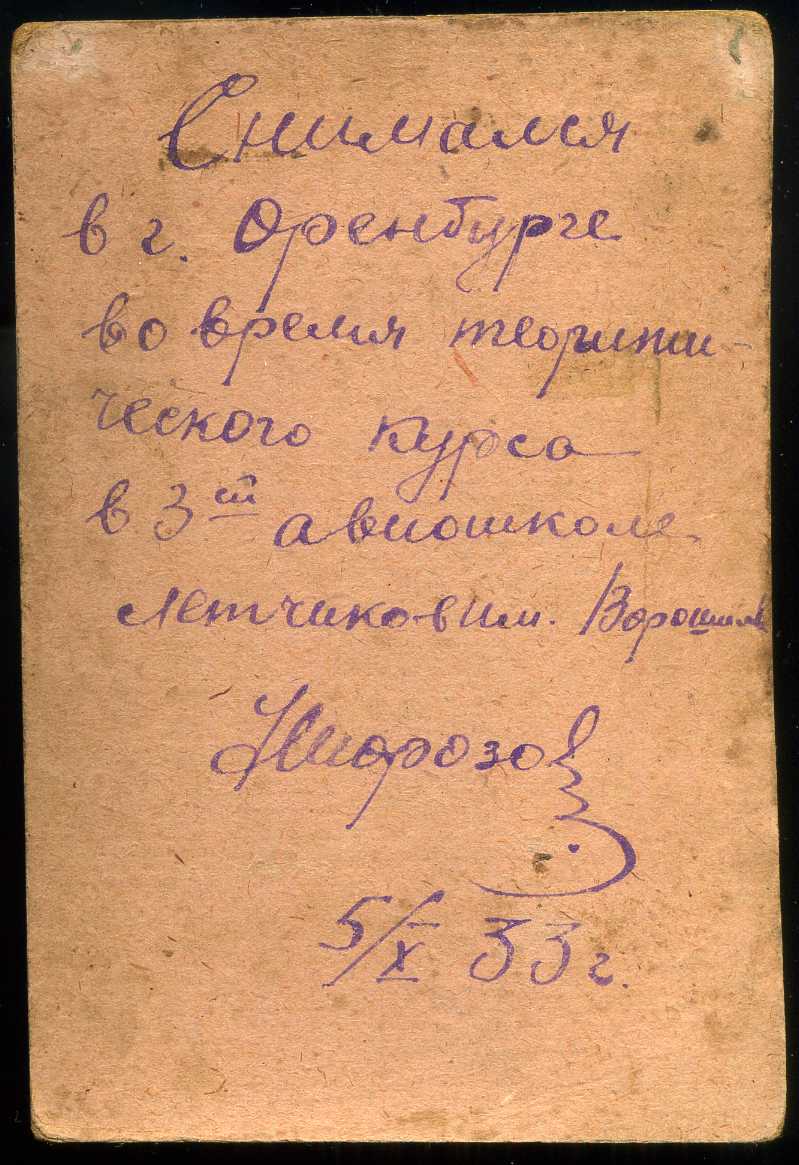 Снимался
в г. Оренбурге
во время теорити-
ческого курса
в 3ей авиошколе
летчиков им. Ворошилов
Морозов
5/X 33 г.